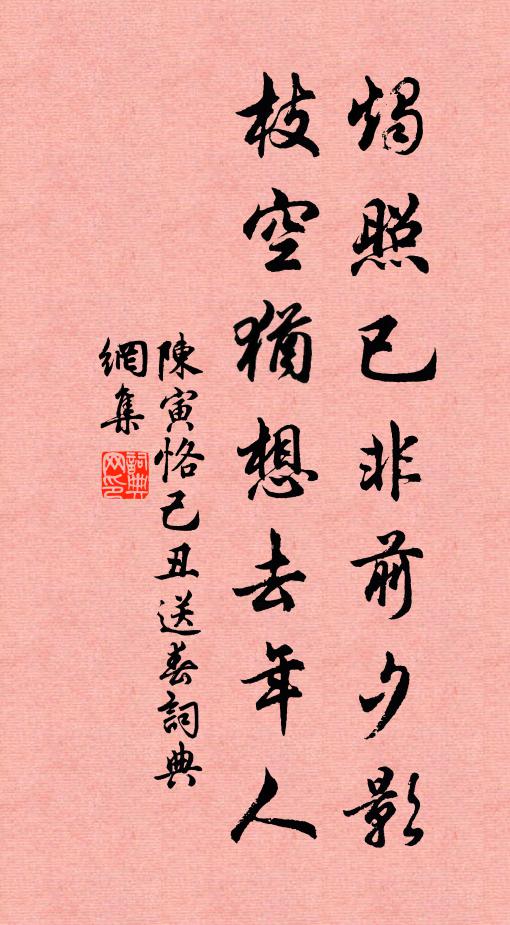 燭照已非前夕影
枝空猶想去年人
陳寅恪己丑送春詞典
網集
詞典
网印